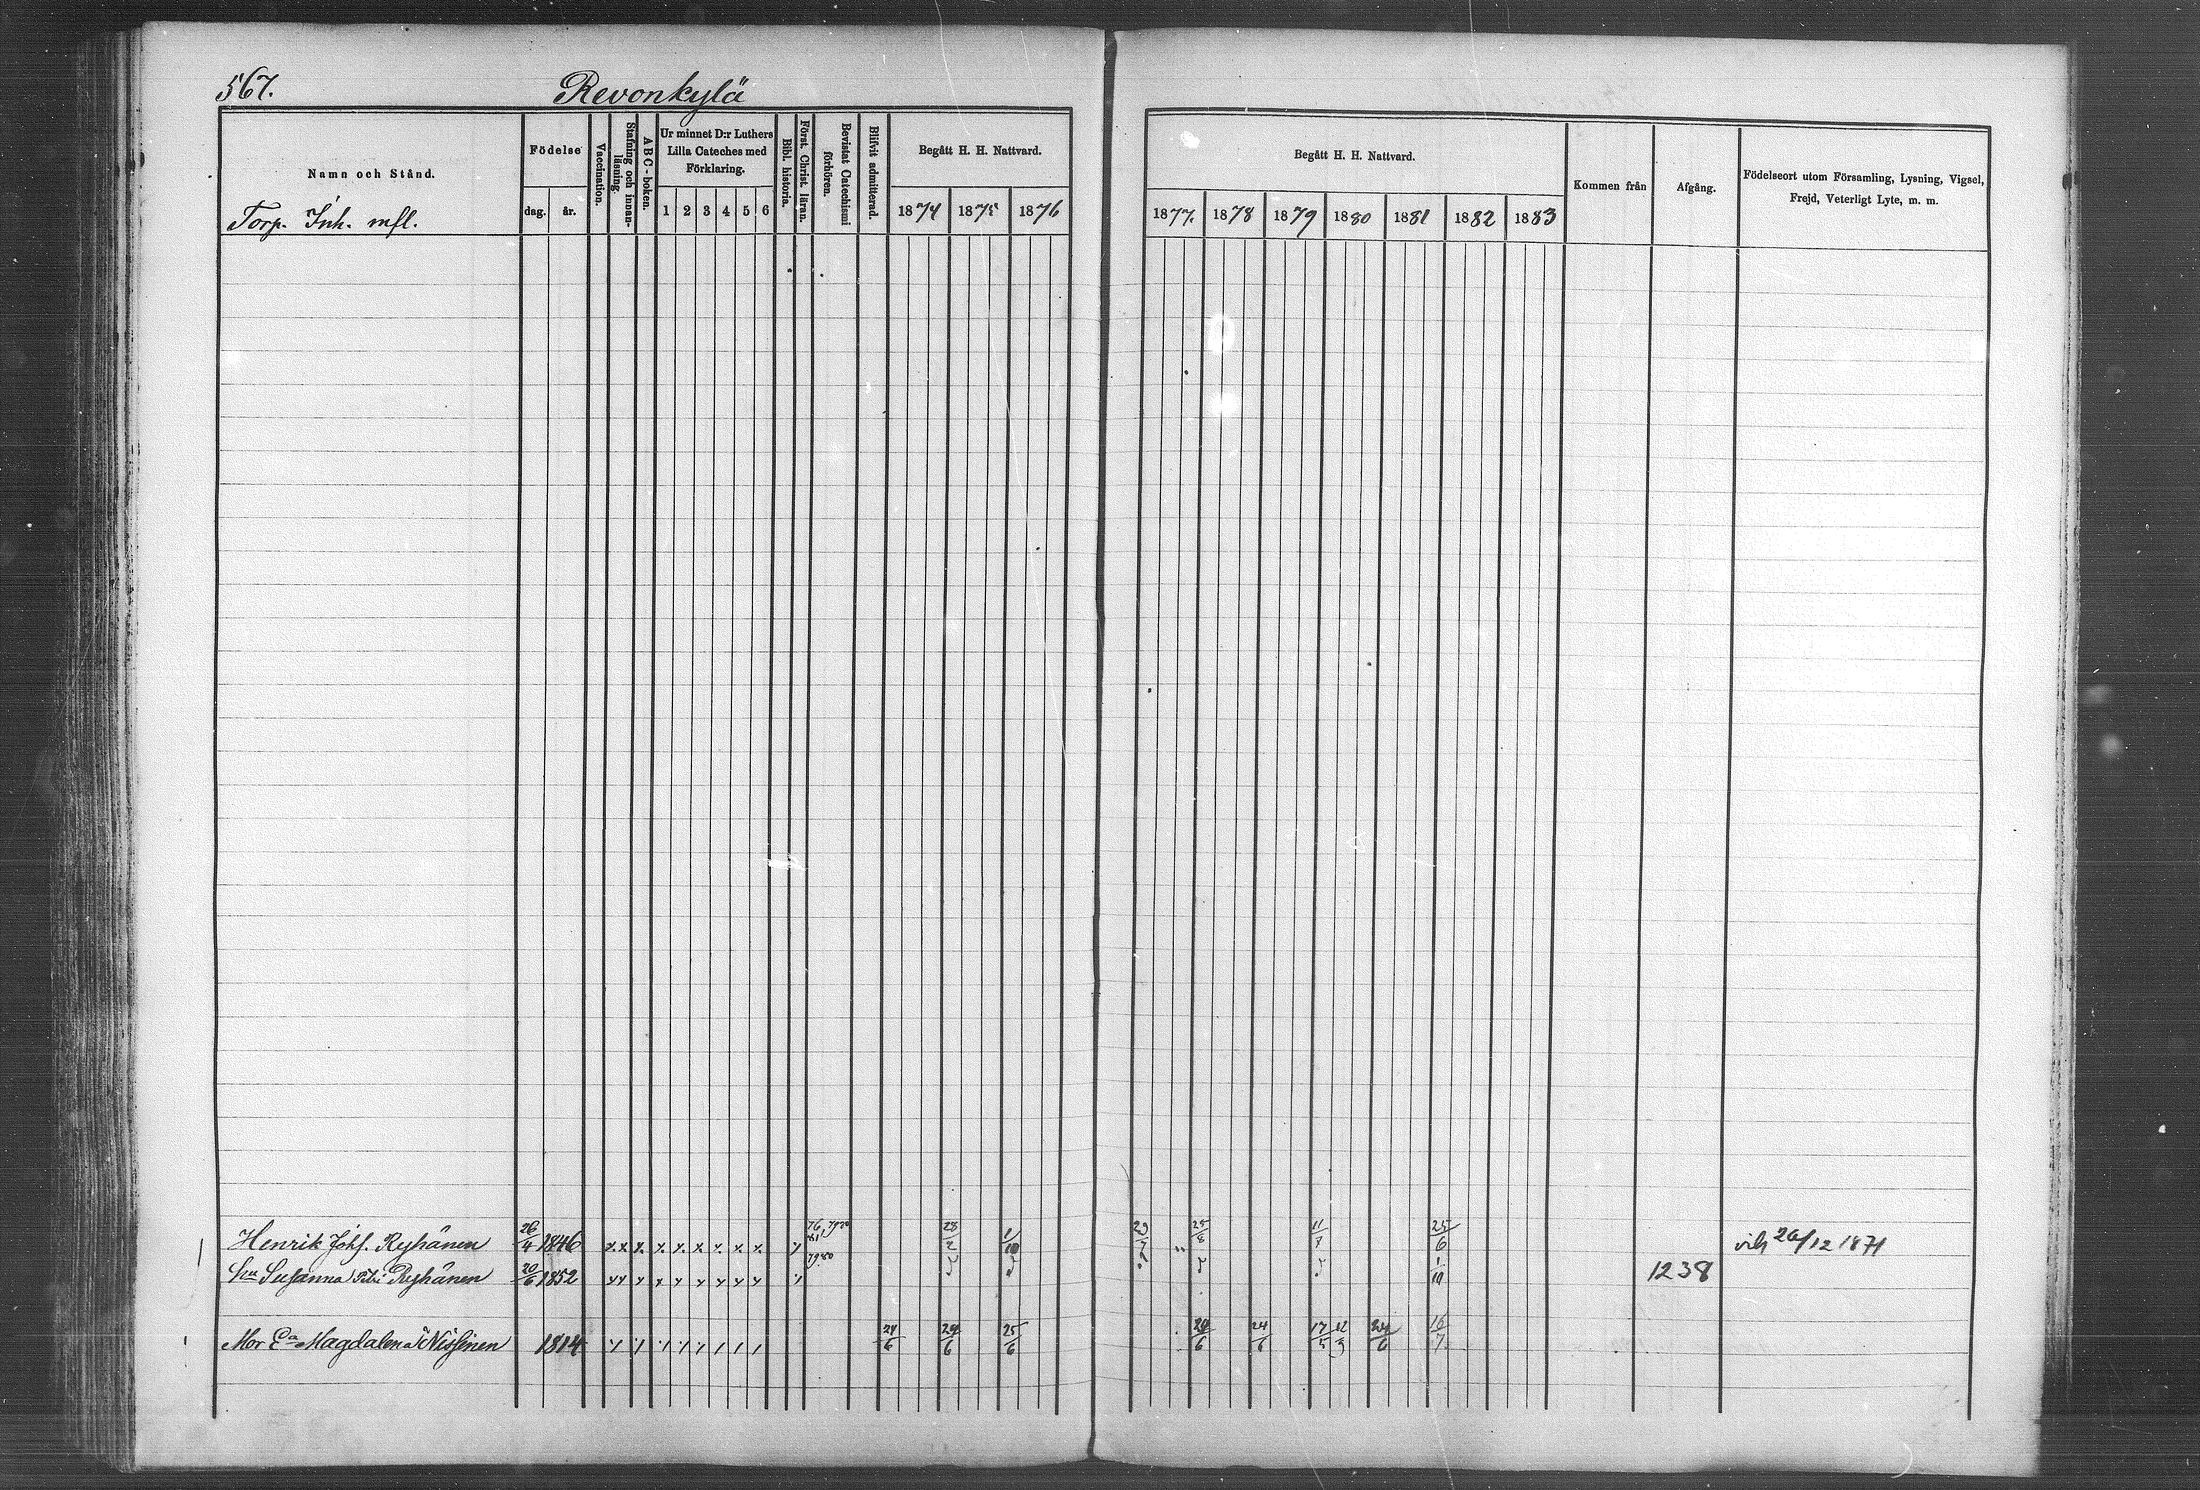 567. Revonkylä
Namn och Stånd.
Torp. Inh. mfl.
Födelse
dag. år.
Vaccination.
Stafning och innanläsning
ABC-boken.
Ur minnet D:r Luthers
Lilla Cateches med
Förklaring.
1 2 3 4 5 6
Bibl. historia.
Först. Christ. läran.
Bevistat Catechismi förhören.
Blifvit admitterad.
Begått H. H. Nattvard.
1874 1875 1876
Begått H. H. Nattvard.
1877. 1878 1879 1880 1881 1882 1883
Kommen från
Afgång.
Födelseort utom Församling, Lysning, Vigsel,
Frejd, Veterligt Lyte, m. m.
Henrik Johs. Ryhänen 26/4 1846 28/2 1/10 29/7 25/8 11/7 25/6 26/12 1871
Hu Susanna Ryhänen 20/6 1852 1/10 1238
Mor Ca Magdalena Nissinen 1814 24/6 24/6 25/6 24/6 24/6 17/5 24/6 16/7